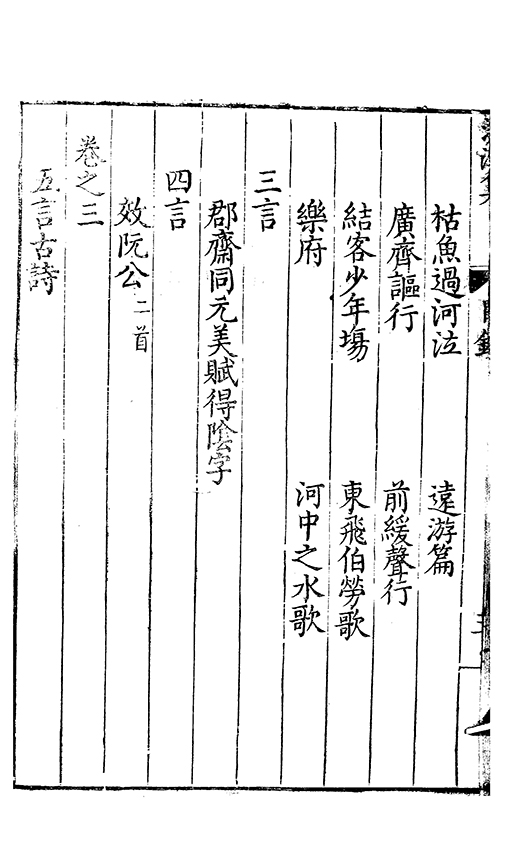 枯魚過河泣　遠游篇
廣齊謳行　前緩聲行
結客少年塲　東飛伯勞歌
樂府　河中之水歌
三言
郡齋同元美賦得陰字
四言
效阮公二首
卷之三
五言古詩